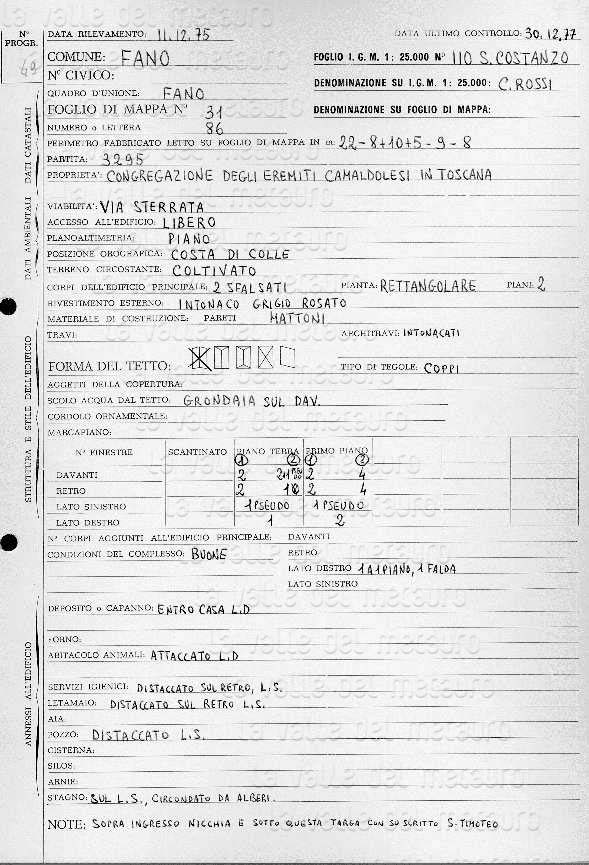 N° PROGR. DATA RILEVAMENTO: 11.12.75 DATA ULTIMO CONTROLLO: 30.12.77
49 COMUNE: FANO FOGLIO I. G. M. 1: 25.000 N° 110 S. COSTANZO
N° CIVICO: DENOMINAZIONE SU I.G.M. 1: 25.000: C. ROSSI
QUADRO D'UNIONE: FANO
FOGLIO DI MAPPA N° 31 DENOMINAZIONE SU FOGLIO DI MAPPA:
NUMERO o LETTERA 86
PERIMETRO FABBRICATO LETTO SU FOGLIO DI MAPPA IN m: 22-8+10+5-9-8
PARTITA: 3295
PROPRIETA': CONGREGAZIONE DEGLI EREMITI CAMALDOLESI IN TOSCANA
DATI AMBIENTALI DATI CATASTALI
VIABILITA': VIA STERRATA
ACCESSO ALL'EDIFICIO: LIBERO
PLANOALTIMETRIA: PIANO
POSIZIONE OROGRAFICA: COSTA DI COLLE
TERRENO CIRCOSTANTE: COLTIVATO
CORPI DELL'EDIFICIO PRINCIPALE: 2 SFALSATI PIANTA: RETTANGOLARE PIANI: 2
RIVESTIMENTO ESTERNO: INTONACO GRIGIO ROSATO
MATERIALE DI COSTRUZIONE: PARETI MATTONI
TRAVI: ARCHITRAVI: INTONACATI
FORMA DEL TETTO: TIPO DI TEGOLE: COPPI
AGGETTI DELLA COPERTURA:
SCOLO ACQUA DAL TETTO: GRONDAIA SUL DAV.
CORDOLO ORNAMENTALE:
MARCAPIANO:
STRUTTURA E STILE DELL'EDIFICIO
N° FINESTRE SCANTINATO PIANO TERRA PRIMO PIANO
1 2 1 2
DAVANTI 2 2 4
RETRO 2 2 4
LATO SINISTRO 1 PSEUDO 1 PSEUDO
LATO DESTRO 1 2
N° CORPI AGGIUNTI ALL'EDIFICIO PRINCIPALE: DAVANTI
CONDIZIONI DEL COMPLESSO: BUONE RETRO
LATO DESTRO 1 A 1 PIANO, 1 FALDA
LATO SINISTRO
DEPOSITO o CAPANNO: ENTRO CASA L.D
FORNO:
ABITACOLO ANIMALI: ATTACCATO L.D
ANNESSI ALL'EDIFICIO
SERVIZI IGIENICI: DISTACCATO SUL RETRO, L.S.
LETAMAIO: DISTACCATO SUL RETRO L.S.
AIA:
POZZO: DISTACCATO L.S.
CISTERNA:
SILOS:
ARNIE:
STAGNO: SUL L.S., CIRCONDATO DA ALBERI.
NOTE: SOPRA INGRESSO NICCHIA E SOTTO QUESTA TARGA CON SU SCRITTO S. TIMOTEO
la valle del metauro